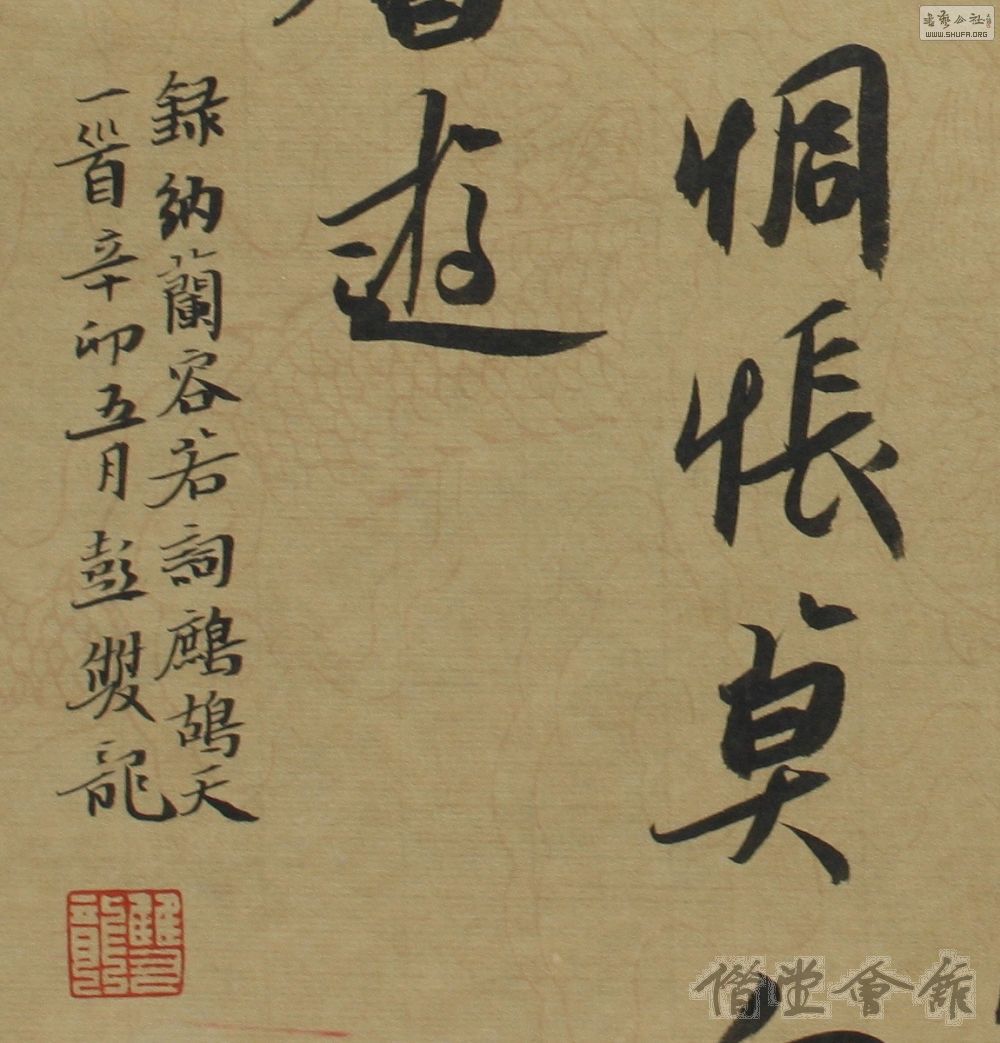 惆悵莫
遊
録納蘭容若詞鷓鴣天
一首辛卯五月彭雙龍
雙龍
書藝公社
WWW.SHUFA.ORG